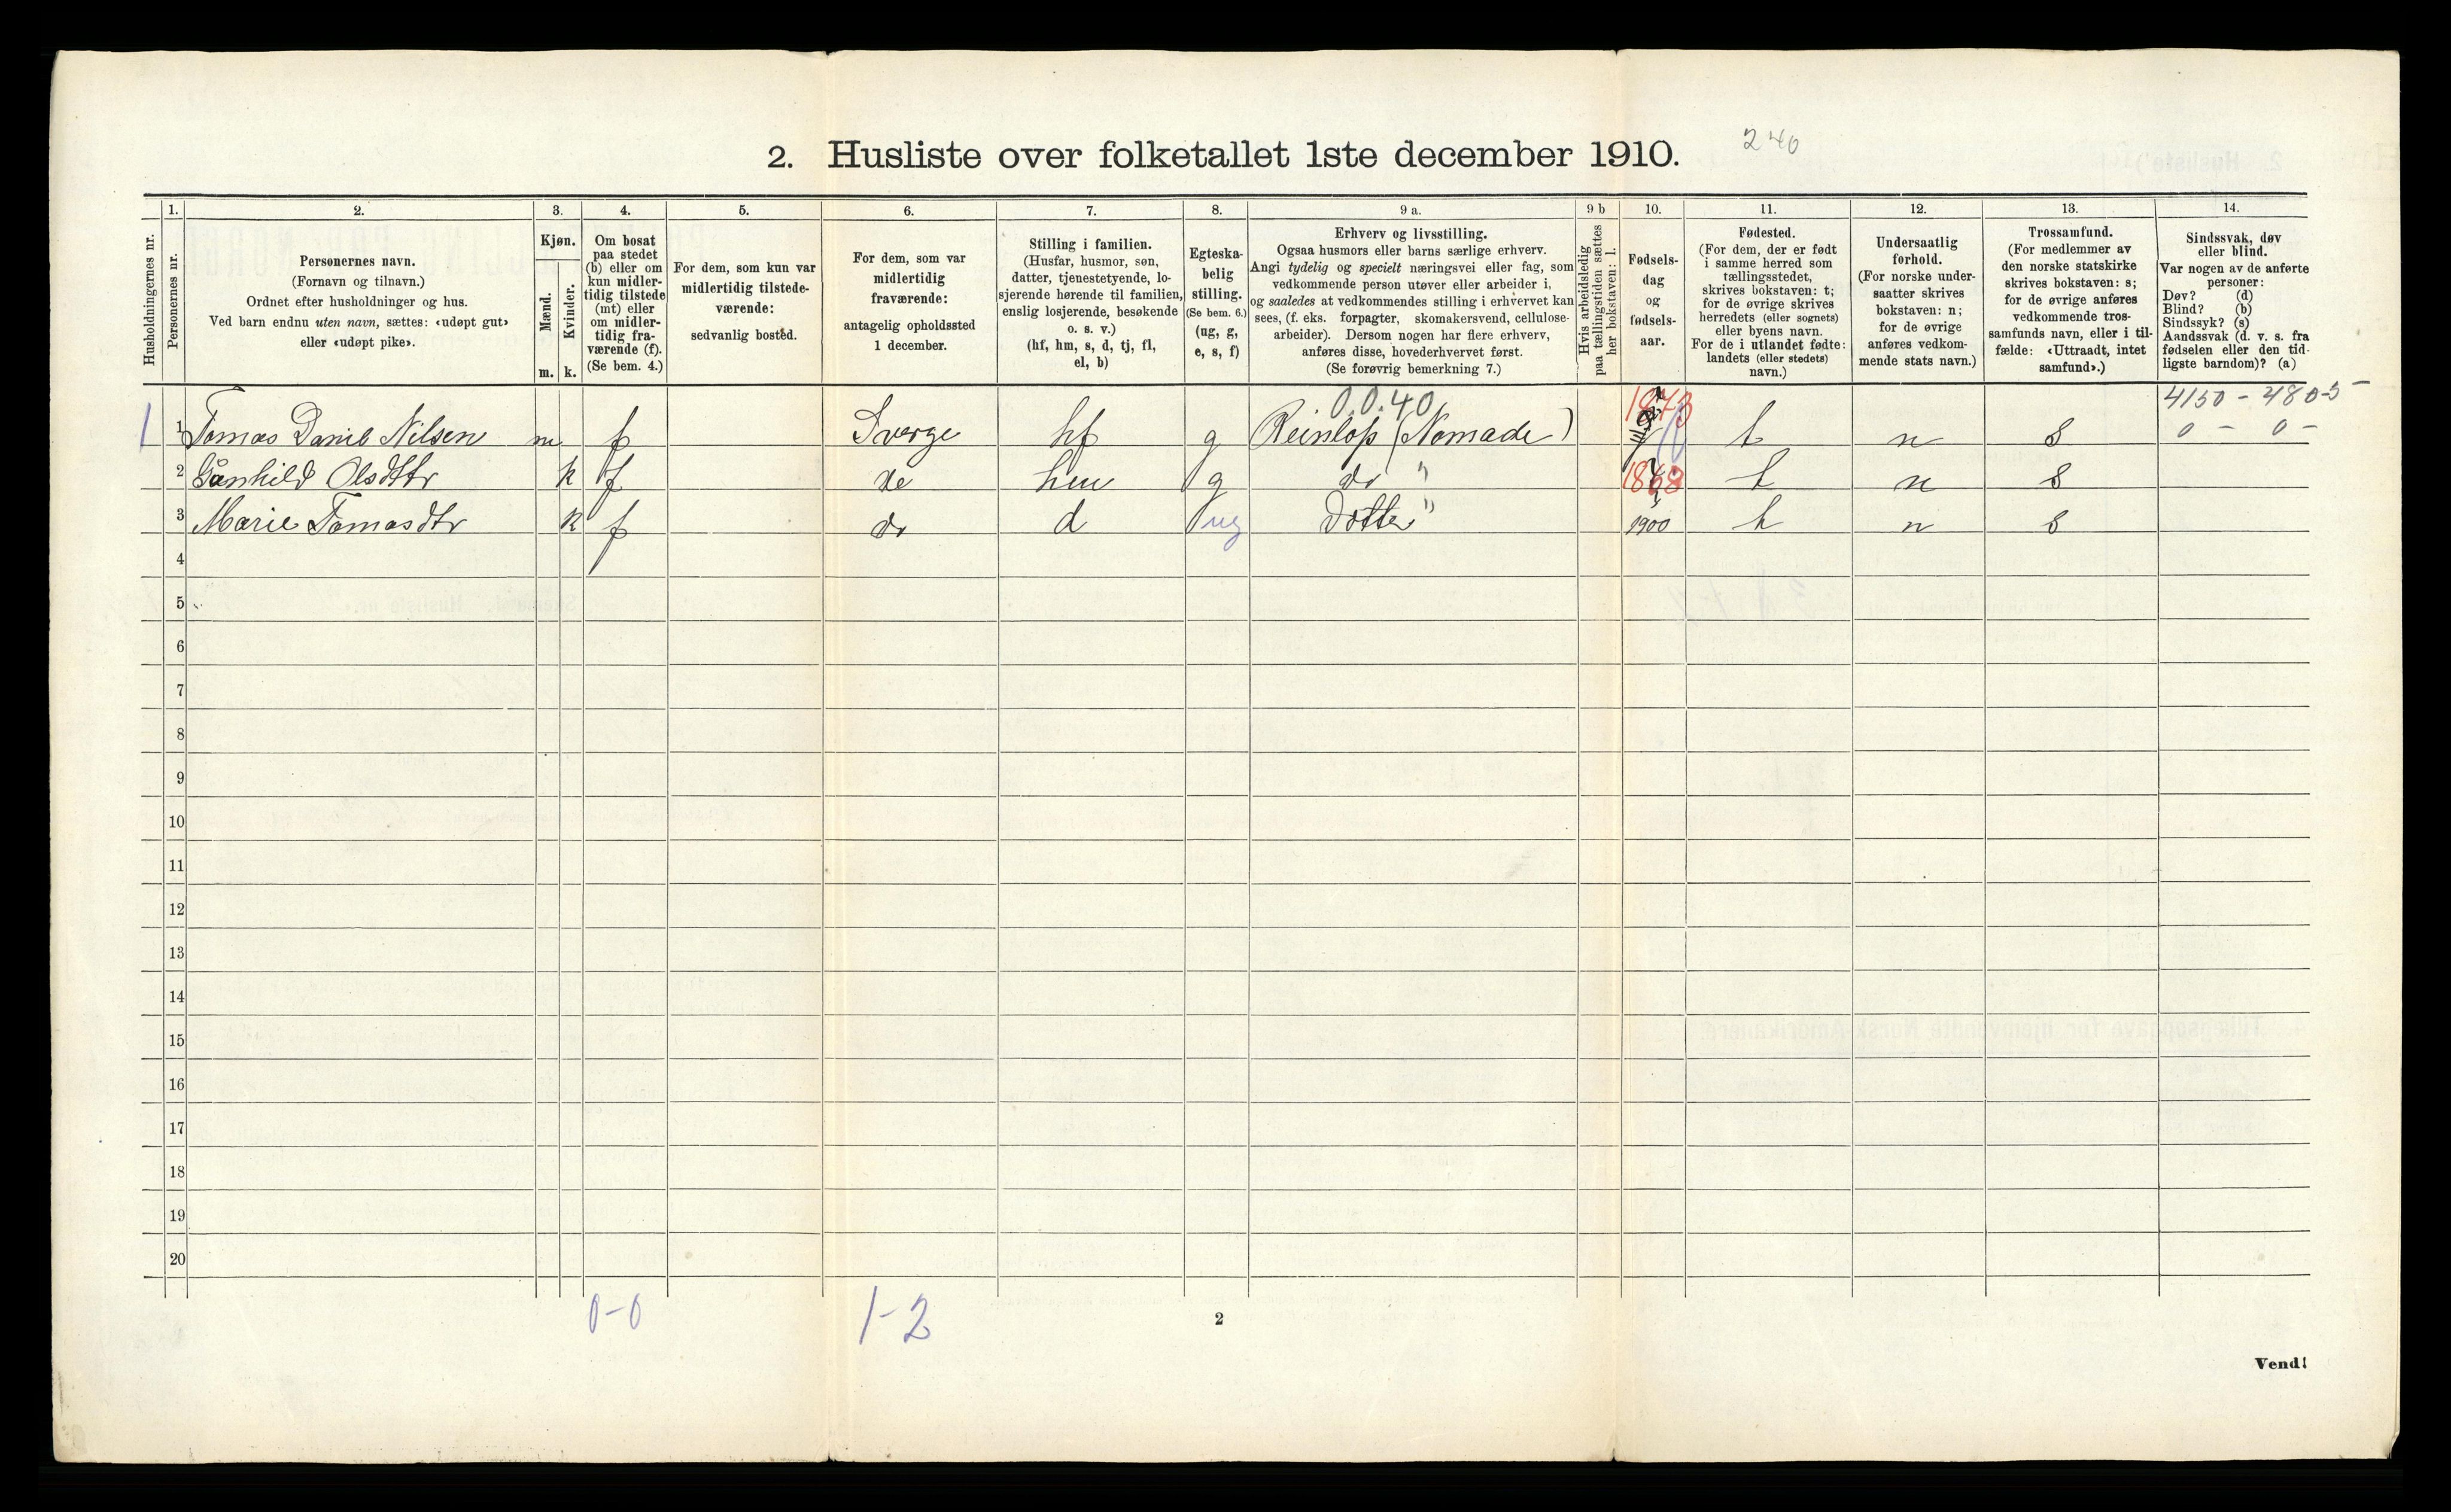 2. Husliste over folketallet 1ste december 1910.
240
Husholdningernes nr.
1.
Personernes nr.
2.
Personernes navn.
(Fornavn og tilnavn.)
Ordnet efter husholdninger og hus.
Ved barn endnu uten navn, sættes: «udøpt gut»
eller «udøpt pike».
3.
Kjøn.
Mænd.
Kvinder.
m. k.
4.
Om bosat
paa stedet
(b) eller om
kun midler-
tidig tilstede
(mt) eller
om midler-
tidig fra-
værende (f).
(Se bem. 4.)
5.
For dem, som kun var
midlertidig tilstede-
værende:
sedvanlig bosted.
6.
For dem, som var
midlertidig
fraværende:
antagelig opholdssted
1 december.
7.
Stilling i familien.
(Husfar, husmor, søn,
datter, tjenestetyende, lo-
sjerende hørende til familien,
enslig losjerende, besøkende
o. s. v.)
(hf, hm, s, d, tj, fl,
el, b)
8.
Egteska-
belig
stilling.
(Se bem. 6.)
(ug, g,
e, s, f)
9 a.
Erhverv og livsstilling.
Ogsaa husmors eller barns særlige erhverv.
Angi tydelig og specielt næringsvei eller fag, som
vedkommende person utøver eller arbeider i,
og saaledes at vedkommendes stilling i erhvervet kan
sees, (f. eks. forpagter, skomakersvend, cellulose-
arbeider). Dersom nogen har flere erhverv,
anføres disse, hovederhvervet først.
(Se forøvrig bemerkning 7.)
9 b
Hvis arbeidsledig
paa tællingstiden sættes
her bokstaven: l.
10.
Fødsels-
dag
og
fødsels-
aar.
11.
Fødested.
(For dem, der er født
i samme herred som
tællingsstedet,
skrives bokstaven: t;
for de øvrige skrives
herredets (eller sognets)
eller byens navn.
For de i utlandet fødte:
landets (eller stedets)
navn.)
12.
Undersaatlig
forhold.
(For norske under-
saatter skrives
bokstaven: n;
for de øvrige
anføres vedkom-
mende stats navn.)
13.
Trossamfund.
(For medlemmer av
den norske statskirke
skrives bokstaven: s;
for de øvrige anføres
vedkommende tros-
samfunds navn, eller i til-
fælde: «Uttraadt, intet
samfund».)
14.
Sindssvak, døv
eller blind.
Var nogen av de anførte
personer:
Døv? (d)
Blind? (b)
Sindssyk? (s)
Aandssvak (d. v. s. fra
fødselen eller den tid-
ligste barndom)? (a)
0.0.40 1873 4150 - 4805 -
1 1 Tomas Daniel Nilsen m f Sverge hf g Reinlop (Nomade) t n s 0 - 0 -
2 Gunhild Olsdtr k f do hm g do " 1868 t n s
3 Marie Tomasdtr k f do d ug Dotter " 1900 t n s
4
5
6
7
8
9
10
11
12
13
14
15
16
17
18
19
20
0-0 1-2
2
Vend!